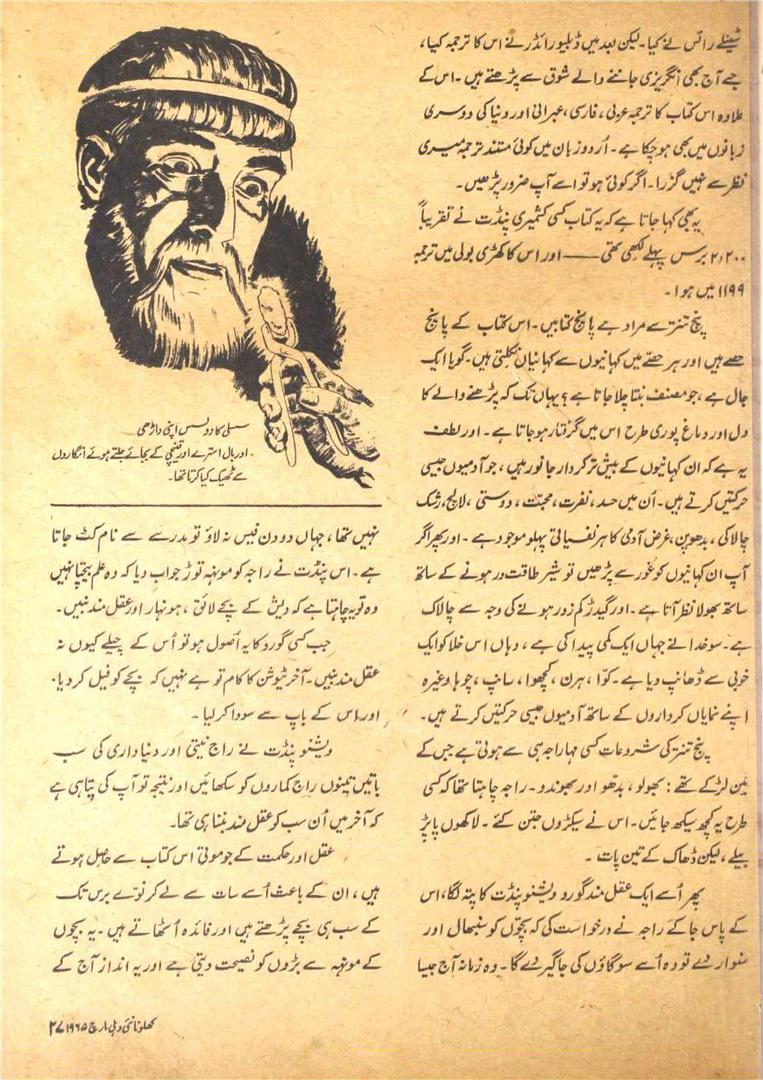 ٹینلے رائس نے کیا۔ لیکن بعد میں ڈبلیو رائڈر نے اس کا ترجمہ کیا،
جسے آج بھی انگریزی جاننے والے شوق سے پڑھتے ہیں۔ اس کے
علاوہ اس کتاب کا ترجمہ عربی، فارسی، عبرانی اور دنیا کی دوسری
زبانوں میں بھی ہوچکا ہے۔ اُردو زبان میں کوئی مستند ترجمہ میری
نظر سے نہیں گزرا۔ اگر کوئی ہو تو اسے آپ ضرور پڑھیں۔
یہ بھی کہا جاتا ہے کہ یہ کتاب کسی کشمیری پنڈت نے تقریباً
۲،۲۰۰ برس پہلے لکھی تھی —— اور اس کا کھڑی بولی میں ترجمہ
۱۱۹۹ میں ہوا۔
پنچ تنتر سے مراد ہے پانچ کتابیں۔ اس کتاب کے پانچ
حصے ہیں اور ہر حصّے میں کہانیوں سے کہانیاں نکلتی ہیں۔ گویا ایک
جال ہے، جو مصنف بنتا چلا جاتا ہے؟ یہاں تک کہ پڑھنے والے کا
دل اور دماغ پوری طرح اس میں گرفتار ہو جاتا ہے۔ اور لطف
یہ ہے کہ ان کہانیوں کے بیش تر کردار جانور ہیں، جو آدمیوں جیسی
حرکتیں کرتے ہیں۔ اُن میں حسد، نفرت، محبت، دوستی، لالچ، رشک
چالاکی، بدھوپن، غرض آدمی کا ہر نفسیاتی پہلو موجود ہے۔ اور پھر اگر
آپ ان کہانیوں کو غور سے پڑھیں تو شیر طاقت ور ہونے کے ساتھ
ساتھ بھولا نظر آتا ہے۔ اور گیدڑ کم زور ہونے کی وجہ سے چالاک
ہے۔ سو خدا نے جہاں ایک کمی پیدا کی ہے، وہاں اس خلا کو ایک
خوبی سے ڈھانپ دیا ہے۔ کوّا، ہرن، کچھوا، سانپ، چوہا وغیرہ
اپنے نمایاں کرداروں کے ساتھ آدمیوں جیسی حرکتیں کرتے ہیں۔
پنچ تنتر کی شروعات کسی مہاراجہ ہی سے ہوتی ہے جس کے
تین لڑکے تھے: بھولو، بدھو اور بھوندو۔ راجہ چاہتا تھا کہ کسی
طرح یہ کچھ سیکھ جائیں۔ اس نے سیکڑوں جتن کئے۔ لاکھوں پاپڑ
بیلے، لیکن ڈھاک کے تین پات۔
پھر اُسے ایک عقل مند گورو ویشنو پنڈت کا پتہ لگا، اس
کے پاس جا کے راجہ نے درخواست کی کہ بچّوں کو سنبھال اور
سنوار دے تو وہ اُسے سو گاؤں کی جاگیر دے گا۔ وہ زمانہ آج جیسا
سسلی کا دویس اپنی داڑھی
اور بال استرے اور قینچی کے بجائے جلتے ہوئے انگاروں
سے ٹھیک کیا کرتا تھا۔
نہیں تھا، جہاں دو دن فیس نہ لاؤ تو مدرسے سے نام کٹ جاتا
ہے۔ اس پنڈت نے راجہ کو مونہہ توڑ جواب دیا کہ وہ علم بیچتا نہیں
وہ تو یہ چاہتا ہے کہ دیش کے بچے لائق، ہونہار اور عقل مند بنیں۔
جب کسی گورو کا یہ اُصول ہو تو اُس کے چیلے کیوں نہ
عقل مند بنیں۔ آخر ٹیوشن کا کام تو ہے نہیں کہ بچّے کو فیل کر دیا۔
اور اس کے باپ سے سودا کر لیا۔
ویشنو پنڈت نے راج نیتی اور دنیا داری کی سب
باتیں تینوں راج کماروں کو سکھائیں اور نتیجہ تو آپ کی پتا ہی ہے
کہ آخر میں اُن سب کو عقل مند بننا ہی تھا۔
عقل اور حکمت کے جو موتی اس کتاب سے حاصل ہوتے
ہیں، ان کے باعث اُسے سات سے لے کر نوّے برس تک
کے سب ہی بچے پڑھتے ہیں اور فائدہ اُٹھاتے ہیں۔ یہ بچّوں
کے مونہہ سے بڑوں کو نصیحت دیتی ہے اور یہ انداز آج کے
کھلونا نئی دہلی مارچ ۱۹۶۵ ۲۷